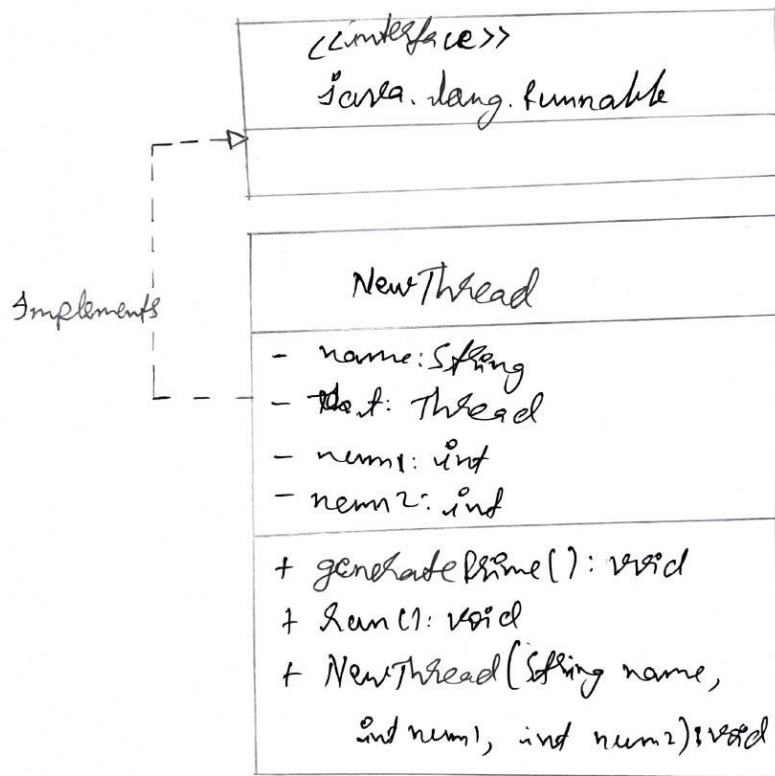 <<interface>>
java.lang.Runnable
Implements
NewThread
- name: String
- t: Thread
- num1: int
- num2: int
+ generatePrime(): void
+ run(): void
+ NewThread(String name,
int num1, int num2): void